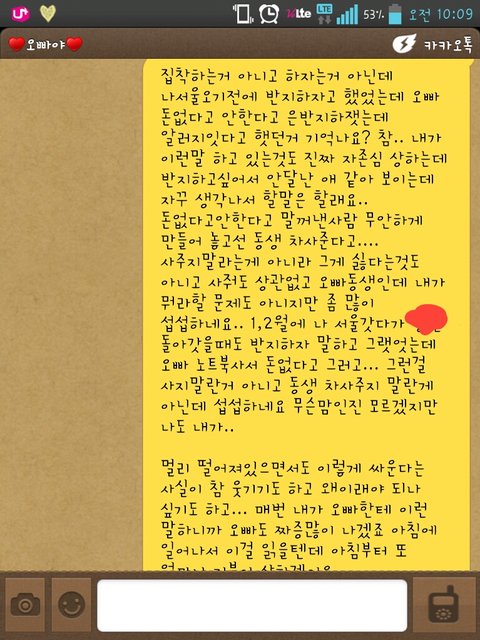 U+
LTE
LTE
53%
오전 10:09
❤오빠야❤
카카오톡
집착하는거 아니고 하자는거 아닌데
나서울오기전에 반지하자고 했었는데 오빠
돈없다고 안한다고 은반지하쟀는데
알러지잇다고 햇던거 기억나요? 참.. 내가
이런말 하고 있는것도 진짜 자존심 상하는데
반지하고싶어서 안달난 애 같아 보이는데
자꾸 생각나서 할말은 할래요..
돈없다고안한다고 말꺼낸사람 무안하게
만들어 놓고선 동생 차사준다고....
사주지말라는게 아니라 그게 싫다는것도
아니고 사줘도 상관없고 오빠동생인데 내가
뭐라할 문제도 아니지만 좀 많이
섭섭하네요.. 1,2월에 나 서울갓다가
돌아갓을때도 반지하자 말하고 그랫엇는데
오빠 노트북사서 돈없다고 그러고... 그런걸
사지말란거 아니고 동생 차사주지 말란게
아닌데 섭섭하네요 무슨맘인진 모르겠지만
나도 내가..
멀리 떨어져있으면서도 이렇게 싸운다는
사실이 참 웃기기도 하고 왜이래야 되나
싶기도 하고... 매번 내가 오빠한테 이런
말하니까 오빠도 짜증많이 나겠죠 아침에
일어나서 이걸 읽을텐데 아침부터 또